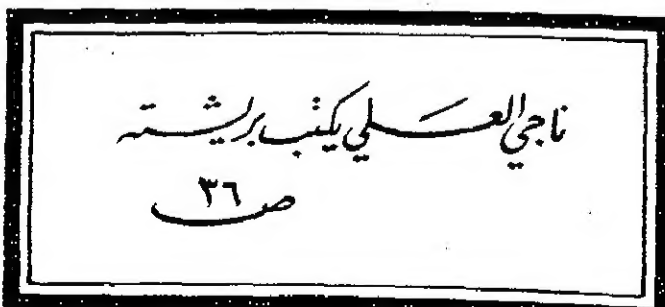 ناجي العلي يكتب بريشته
ص ٣٦